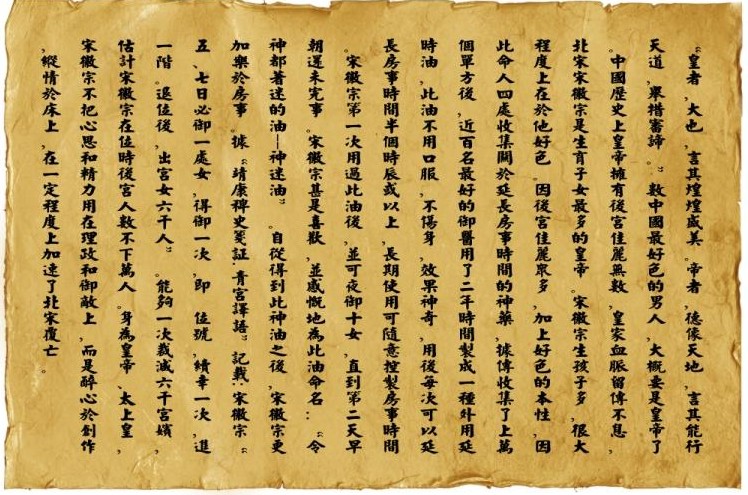 “皇者，大也，言其煌煌盛美。帝者，德像天地，言其能行
天道，舉措審諦。”數中國最好色的男人，大概要是皇帝了
。中國歷史上皇帝擁有後宮佳麗無數，皇家血脈留傳不息，
北宋宋徽宗是生育子女最多的皇帝。宋徽宗生孩子多，很大
程度上在於他好色。因後宮佳麗眾多，加上好色的本性，因
此命人四處收集關於延長房事時間的神藥，據傳收集了上萬
個單方後，近百名最好的御醫用了二年時間製成一種外用延
時油，此油不用口服，不傷身，效果神奇，用後每次可以延
長房事時間半個時辰或以上，長期使用可隨意控製房事時間
。宋徽宗第一次用過此油後，並可夜御十女，直到第二天早
朝還未完事。宋徽宗甚是喜歡，並感慨地為此油命名：“令
神都著迷的油—神迷油”。自從得到此神油之後，宋徽宗更
加樂於房事。據“靖康稗史箋証·青宮譯語”記載:宋徽宗“
五、七日必御一處女，得御一次，即 位號，續幸一次，進
一階。退位後，出宮女六千人”。能夠一次裁減六千宮嬪，
估計宋徽宗在位時後宮人數不下萬人。身為皇帝、太上皇，
宋徽宗不把心思和精力用在理政和御敵上，而是醉心於創作
，縱情於床上，在一定程度上加速了北宋覆亡。